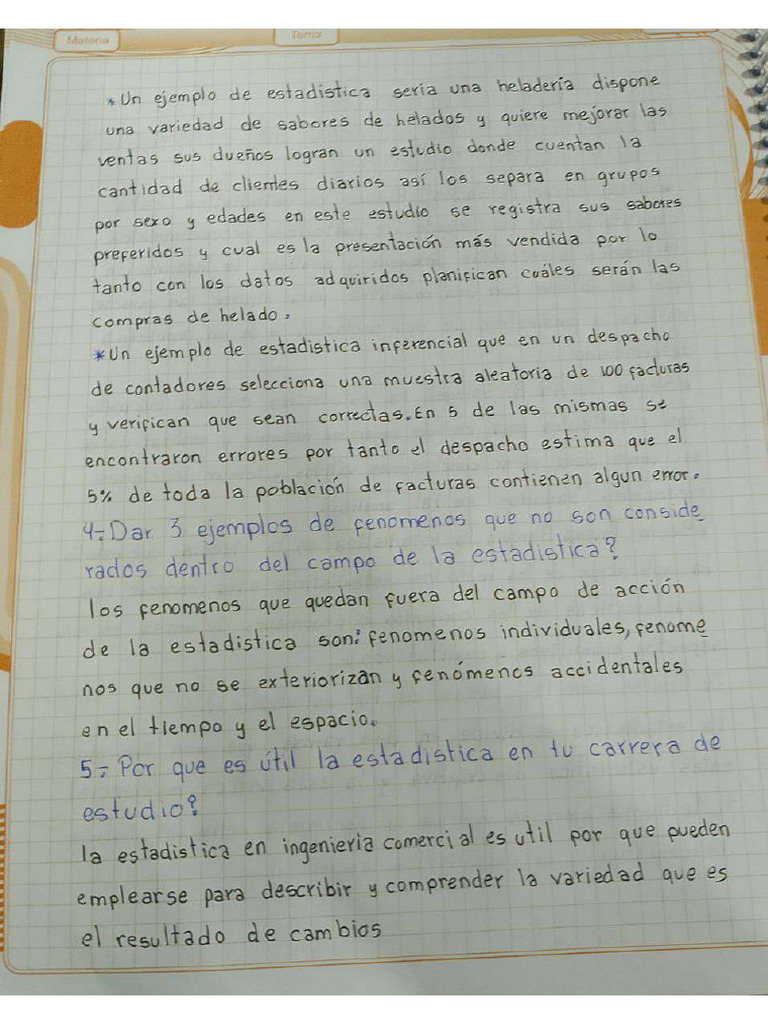 Materia
Tema
* Un ejemplo de estadistica seria una heladería dispone
una variedad de sabores de helados y quiere mejorar las
ventas sus dueños logran un estudio donde cuentan la
cantidad de clientes diarios así los separa en grupos
por sexo y edades en este estudio se registra sus sabores
preferidos y cual es la presentación más vendida por lo
tanto con los datos adquiridos planifican cuáles serán las
compras de helado.
* Un ejemplo de estadistica inferencial que en un despacho
de contadores selecciona una muestra aleatoria de 100 facturas
y verifican que sean correctas. En 5 de las mismas se
encontraron errores por tanto el despacho estima que el
5% de toda la población de facturas contienen algun error.
4-Dar 3 ejemplos de fenomenos que no son conside
rados dentro del campo de la estadistica?
los fenomenos que quedan fuera del campo de acción
de la estadistica son: fenomenos individuales, fenome
nos que no se exteriorizan y fenómenos accidentales
en el tiempo y el espacio.
5- Por que es útil la estadistica en tu carrera de
estudio?
la estadistica en ingenieria comercial es util por que pueden
emplearse para describir y comprender la variedad que es
el resultado de cambios